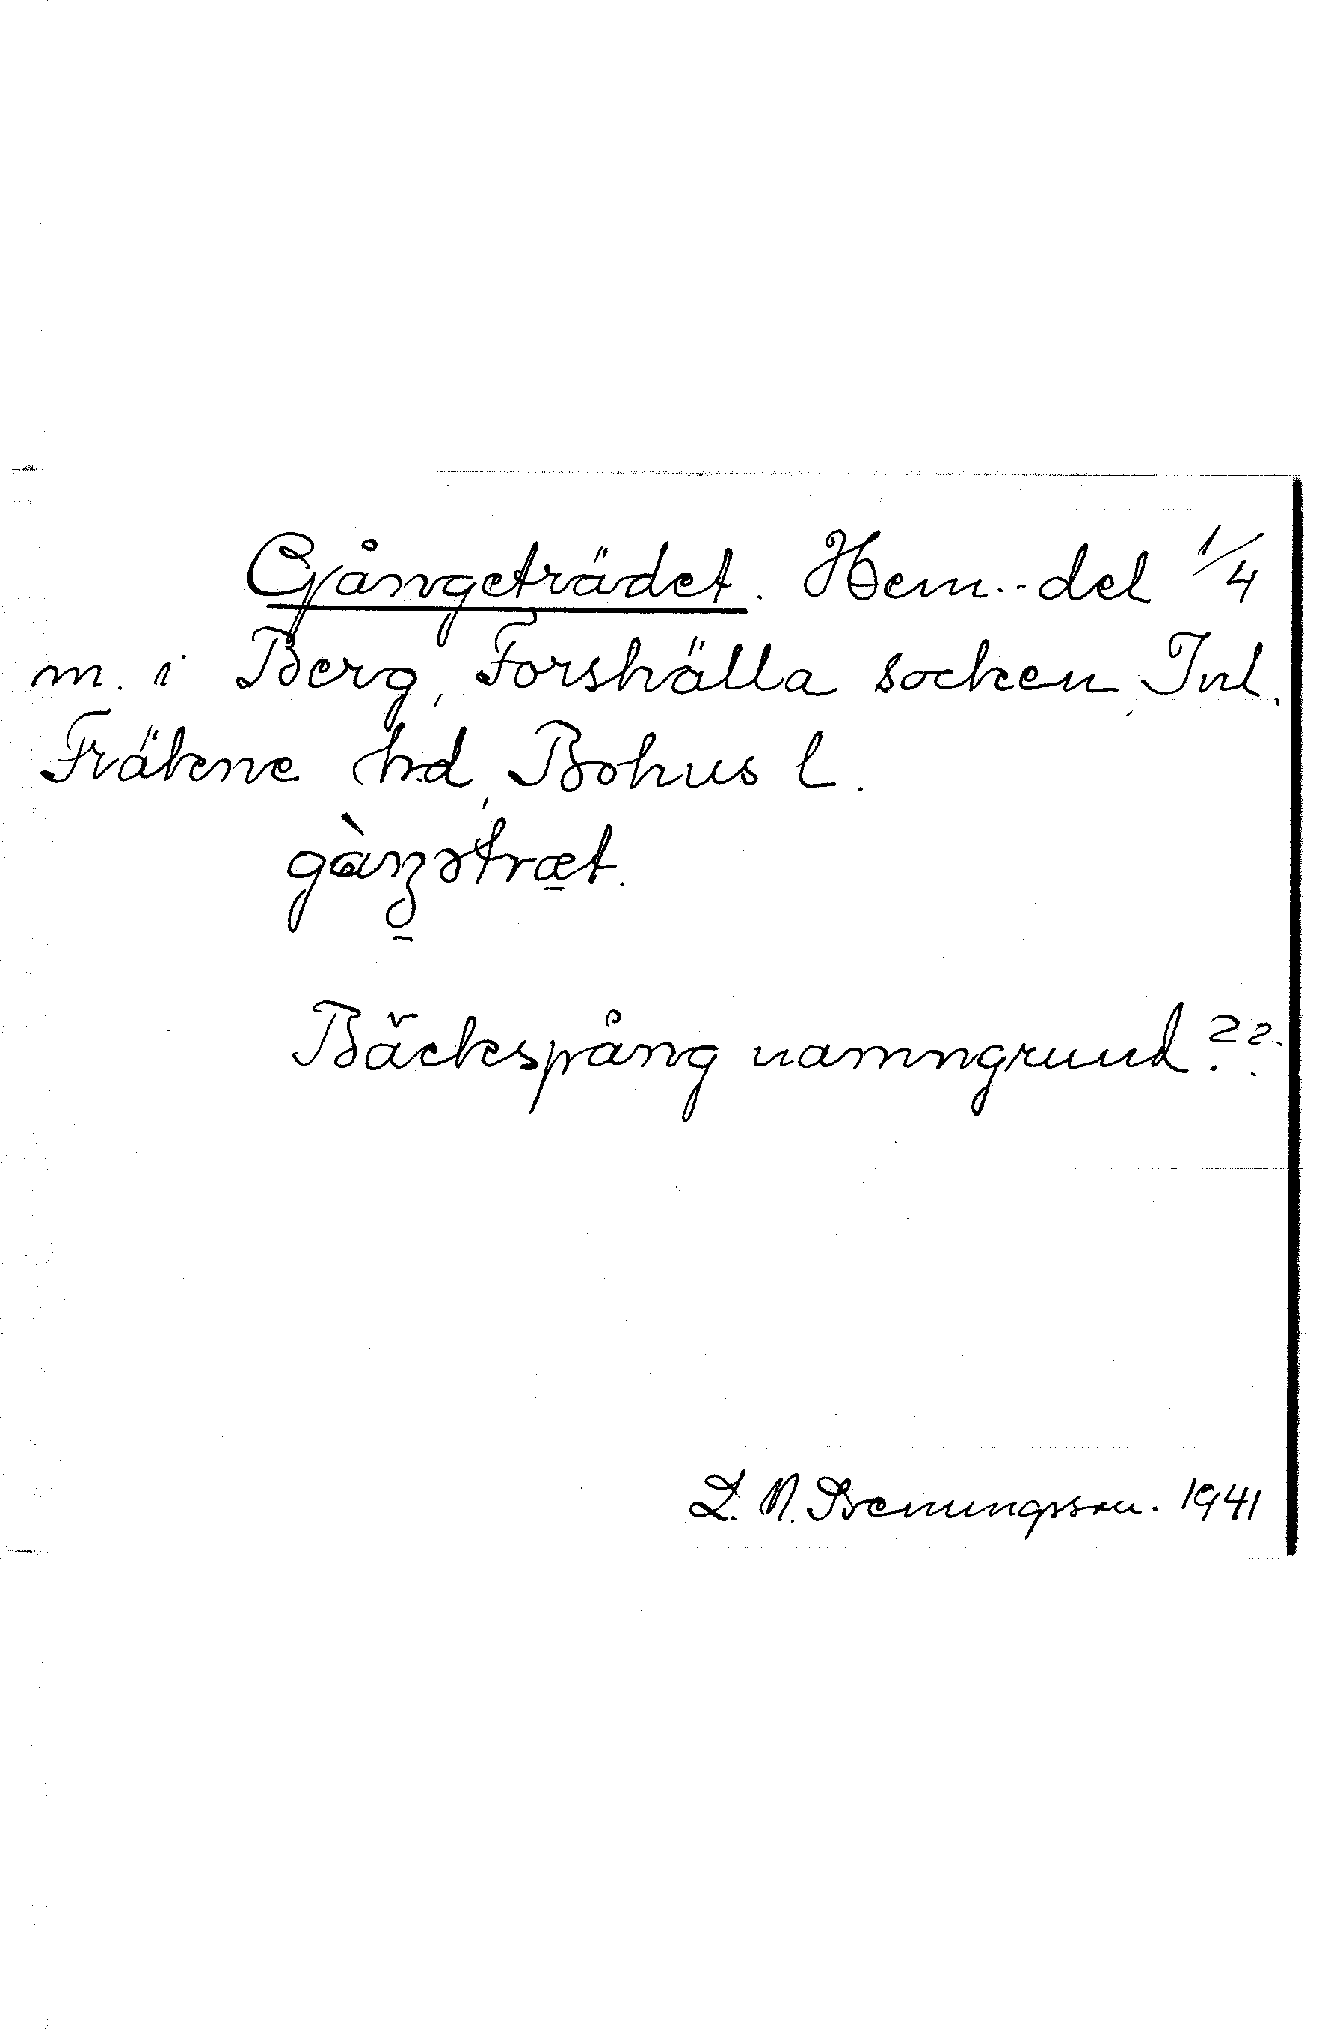 Gångeträdet. Hem.-del 1/4
m. i Berg, Forshälla socken, Inl.
Fräkne hd, Bohus l.
gàŋətræt.
Bäckspång namngrund??
D. N. 1941